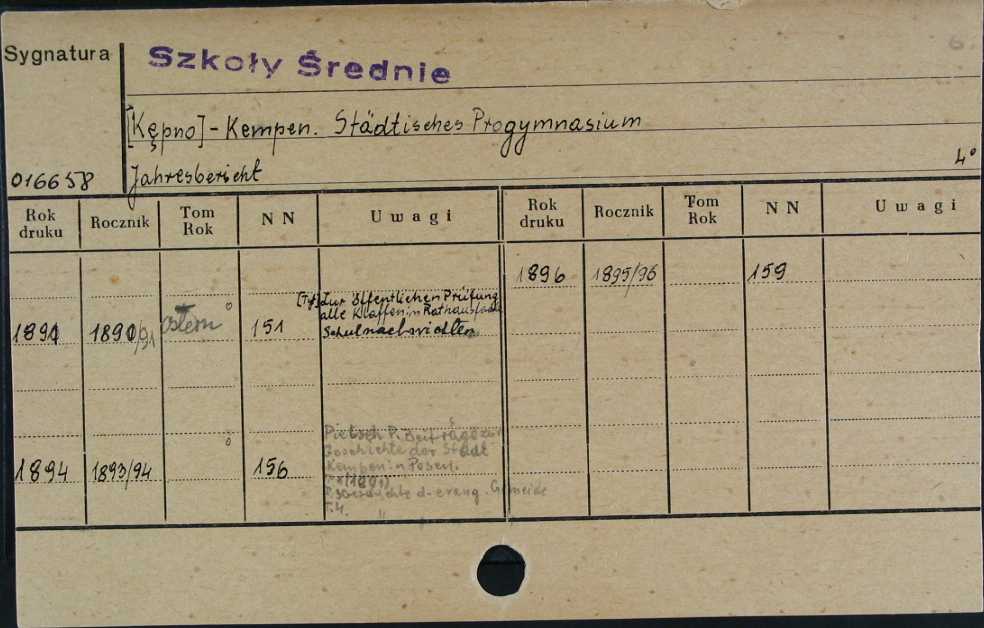 6.
Sygnatura
Szkoły Średnie
[Kępno] - Kempen. Städtisches Progymnasium
4°
016658 Jahresbericht
Rok druku Rocznik Tom Rok NN Uwagi Rok druku Rocznik Tom Rok NN Uwagi
1896 1895/96 159
zur öffentlichen Prüfung
alle Klassen in
1891 1890/91 Ostern 151 Schulnachrichten
Pietsch P. Beiträge zur
Geschichte der Stadt
Kempen in Posen.
1894 1893/94 156
d. evang. Gemeinde
T.4.